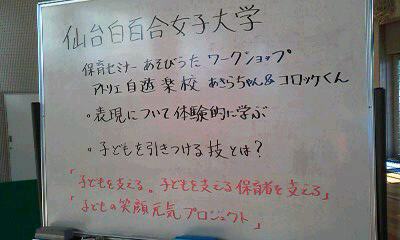 仙台白百合女子大学
保育セミナー あそびうた ワークショップ
アトリエ自遊楽校 あきらちゃん&コロッケくん
。表現について体験的に学ぶ
。子どもを引きつける技とは?
「子どもを支える。子どもを支える保育者を支える」
「子どもの笑顔元気プロジェクト」